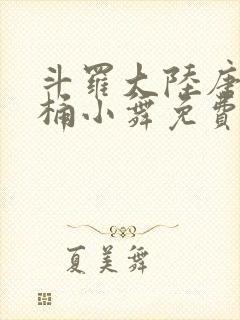 斗羅大陸唐
桶小舞免費
夏美舞